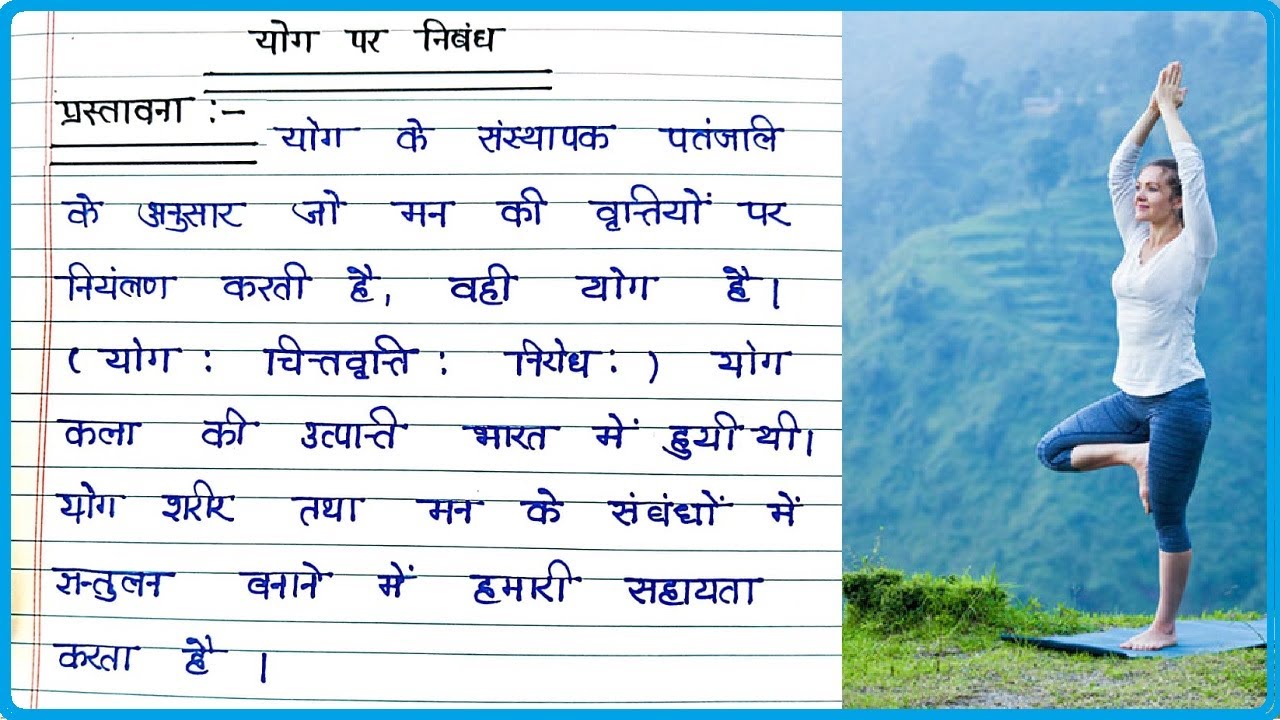 योग पर निबंध
प्रस्तावना :-
योग के संस्थापक पतंजलि
के अनुसार जो मन की वृत्तियों पर
नियंत्रण करती है, वही योग है।
( योग : चित्तवृत्ति : निरोध : ) योग
कला की उत्पत्ति भारत में हुयी थी।
योग शरीर तथा मन के संबंधों में
सन्तुलन बनाने में हमारी सहायता
करता है ।